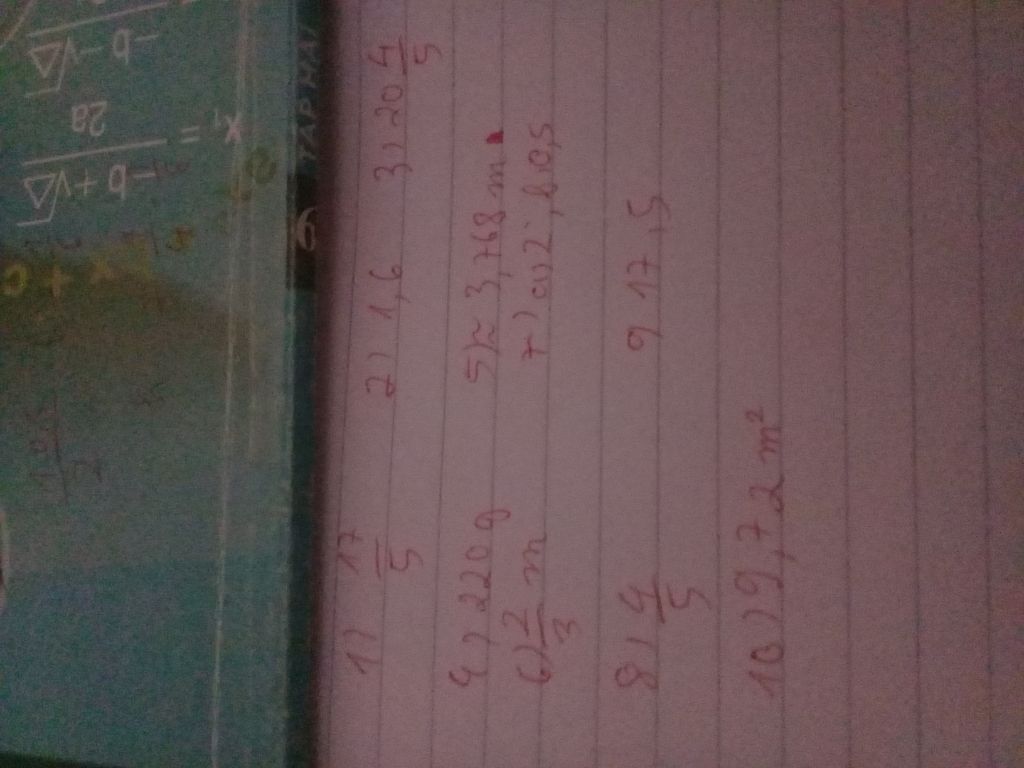 1) 17/5   2) 1,6   3) 20 4/5
4) 220 g   5) ≈ 3,768 m
6) 2/3 m   7) a) 2; b 0,5
8) 4/5   9 17,5
10) 9,72 m²
x₁ = -b+√Δ / 2a
-b-√Δ
x + c